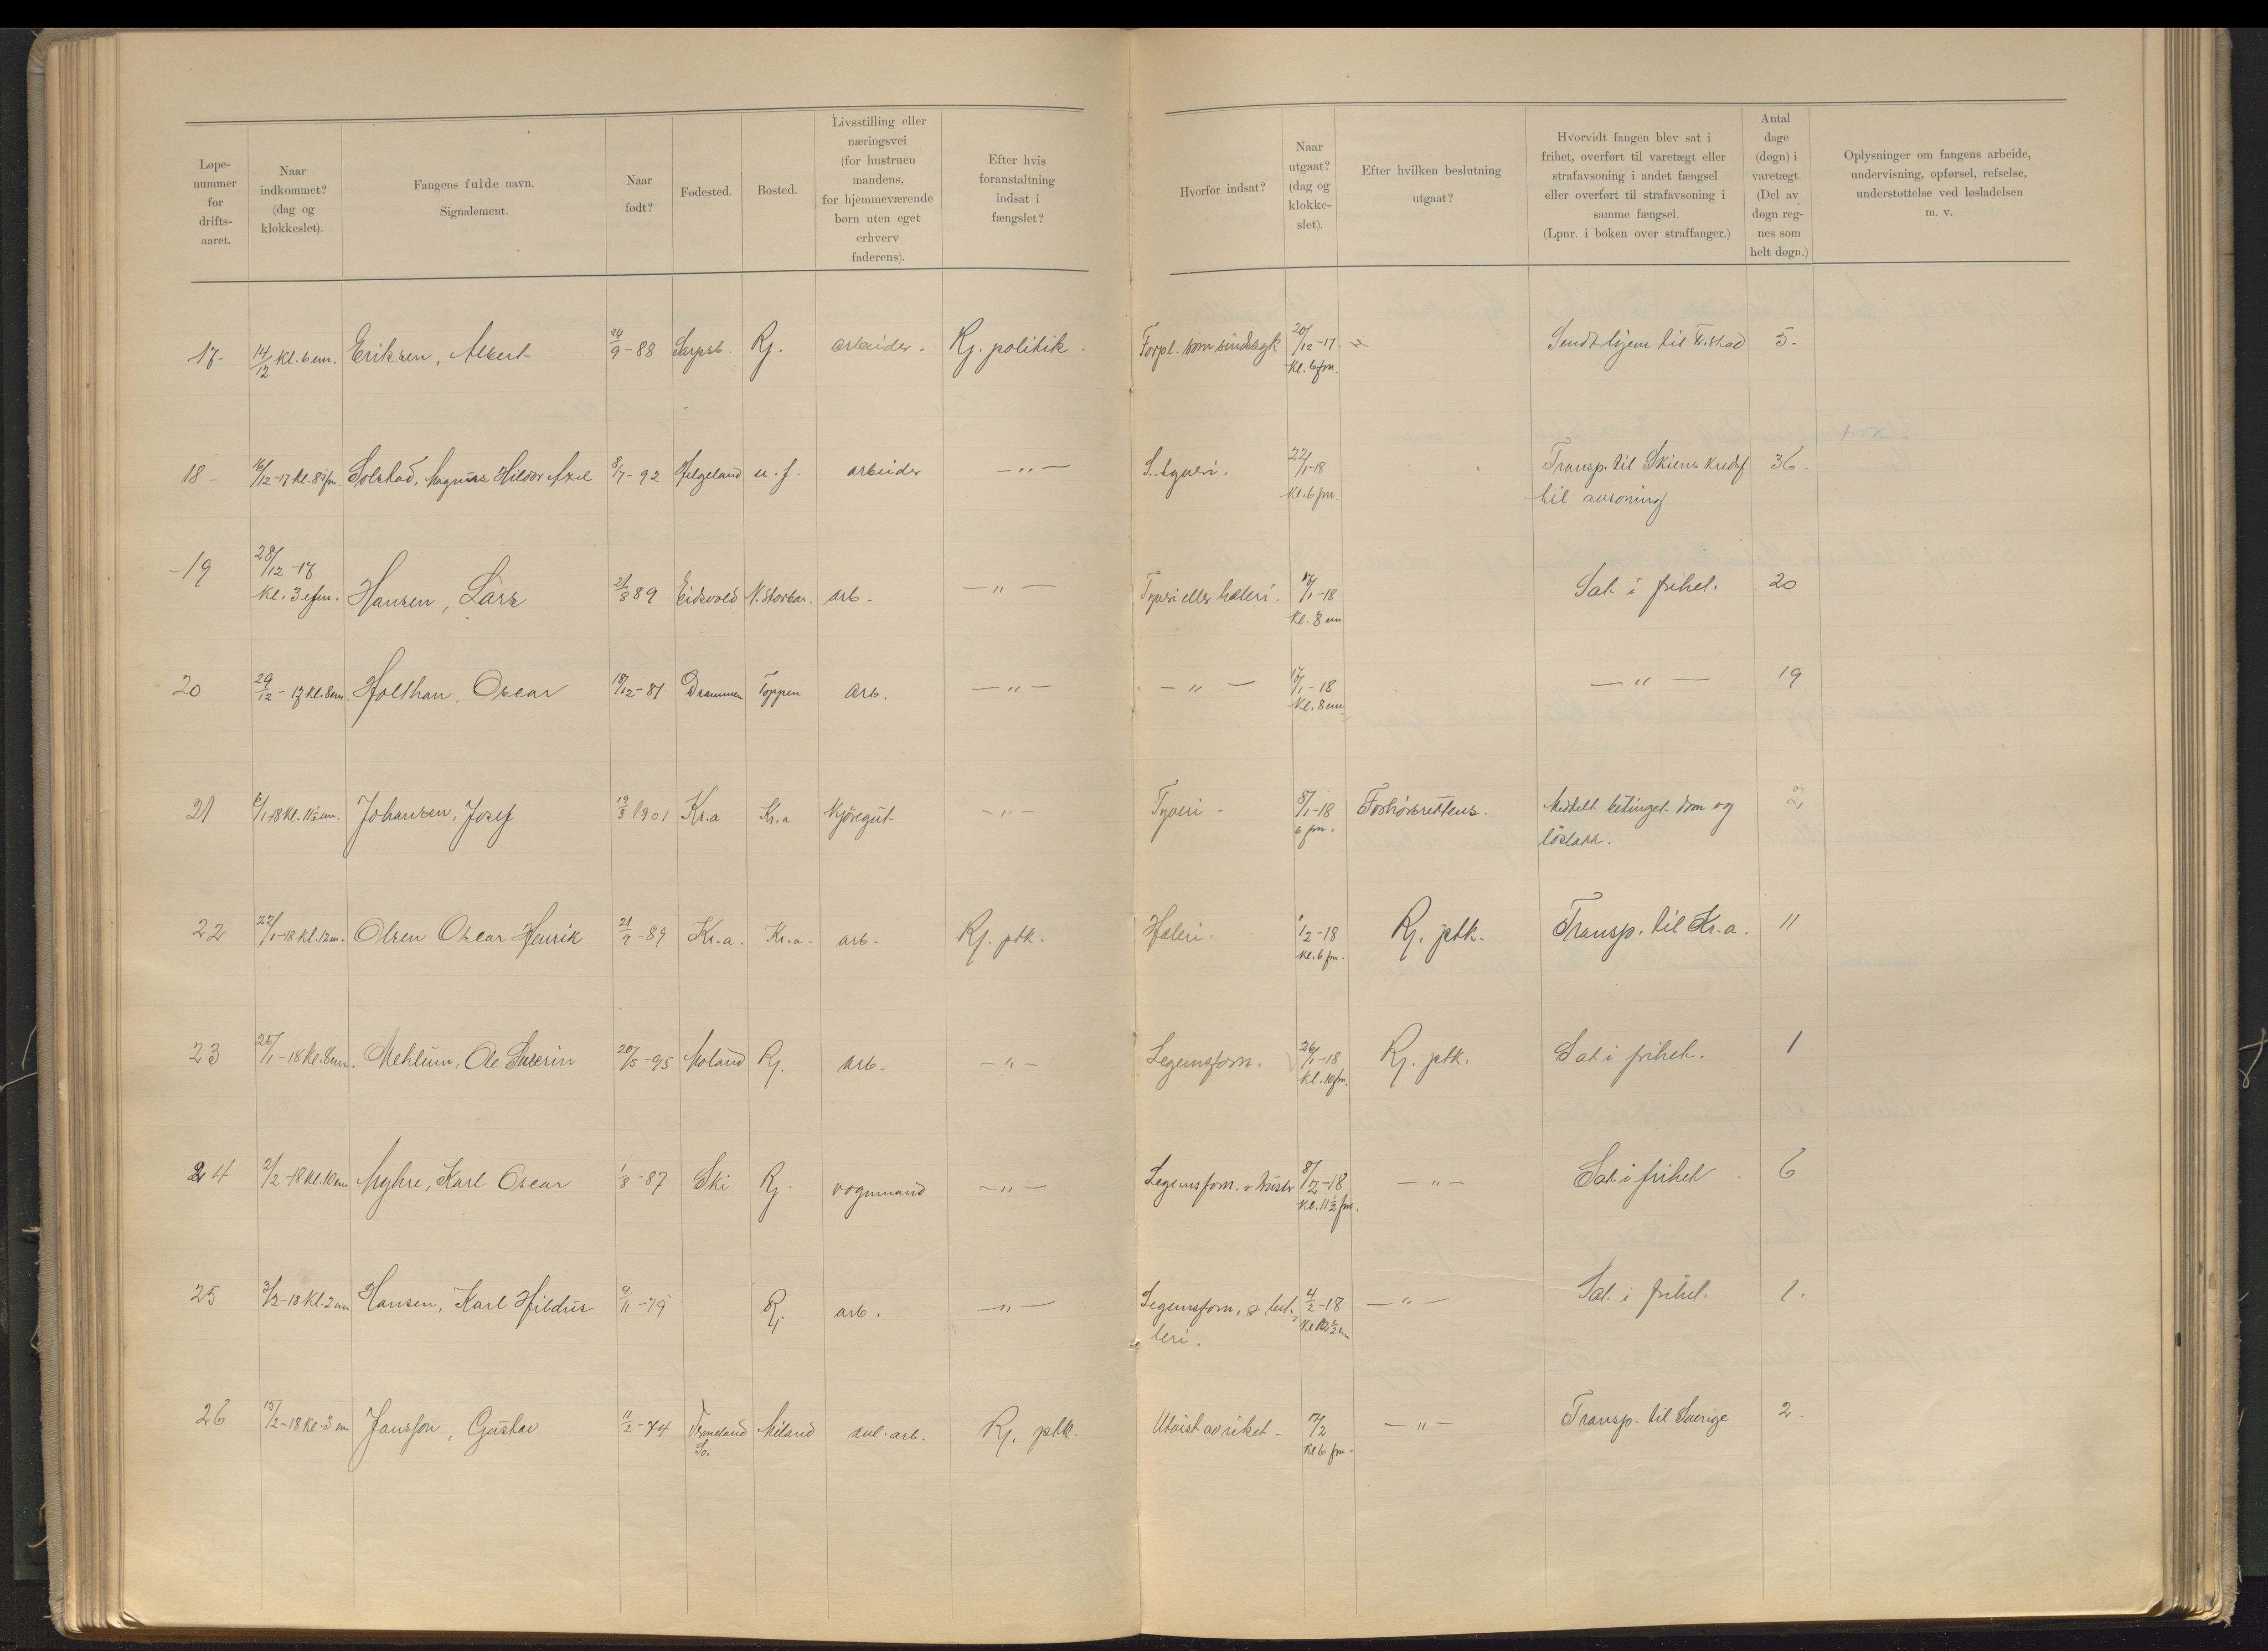 Løpe-
nummer
for
drifts-
aaret.
Naar
indkommet?
(dag og
klokkeslet).
Fangens fulde navn.
Signalement.
Naar
født?
Fødested.
Bosted.
Livsstilling eller
næringsvei
(for hustruen
mandens,
for hjemmeværende
børn uten eget
erhverv
faderens).
Efter hvis
foranstaltning
indsat i
fængslet?
Hvorfor indsat?
Naar
utgaat?
(dag og
klokke-
slet).
Efter hvilken beslutning
utgaat?
Hvorvidt fangen blev sat i
frihet, overført til varetægt eller
strafavsoning i andet fængsel
eller overført til strafavsoning i
samme fængsel.
(Lpnr. i boken over straffanger.)
Antal
dage
(døgn) i
varetægt
(Del av
døgn reg-
nes som
helt døgn.)
Oplysninger om fangens arbeide,
undervisning, opførsel, refselse,
understøttelse ved løsladelsen
m. v.
17- 14/12 Kl. 6 em. Eriksen, Albert 24/9-88 Sarpsb. Rj. arbeider. Rj. politik. Forpl. som sindssyk 20/12-17. Sendt hjem til 5.
Kl. 6 fm.
18- 16/12-17 Kl. 8½ fm. Solstad, Magnus Hildor Axel 8/7-92 Helgeland u. f. arbeider —"— S. tyveri. 22/1-18 Transp. til Skiens kredsf. 36.
Kl. 6 fm. til avsoning
-19 28/12-17
Kl. 3 efm. Hansen, Lars 26/8 89 Eidsvold N. Storbar. arb- —"— Tyveri eller hæleri. 17/1-18 Sat i frihet. 20
Kl. 8 em
20 29/12-17 Kl. 8 em. Holthan, Oscar 18/12-81 Drammen Toppen arb. —"— —"— 17/1-18 —"— 19
Kl. 8 em
21 6/1-18 Kl. 11½ em. Johansen, Josef 19/3 1901 Kr.a Kr.a Kjöregut —"— Tyveri - 8/1-18 Forhörsrettens. Meddelt betinget dom og 2
6 fm. löslatt.
22 22/1-18 Kl. 12 m. Olsen Oscar Henrik 21/9-89 Kr.a. Kr.a- arb- Rj. ptk. Hæleri. 1/2-18 Rj. ptk. Transp. til Kr.a. 11
Kl. 6 fm.
23 25/1-18 Kl. 8 em. Mehlum, Ole Severin 20/5-95 Moland Rj. arb- —"— Legemsforn. 26/1-18 Rj. ptk. Sat i frihet. 1
Kl. 10 fm.
24 2/2-18 Kl. 10 em Myhre, Karl Oscar 1/8-87 Ski Rj. vognmand —"— Legemsforn. o trusler 8/2-18 —"— Sat i frihet 6
Kl. 11½ fm.
25 3/2-18 Kl. 2 em Hansen, Karl Hildus 9/11-79 Rj. arb. —"— Legemsforn. & bet- 4/2-18 —"— Sat i frihet. 1.
leri. Kl 12½ em
26 15/2-18 Kl. 3 em Jansson, Gustav 11/2-74 Vermeland Miland anl. arb. Rj. ptk. Utvist av riket- 17/2 —"— Transp. til Sverige 2
Sv. Kl 6 fm-